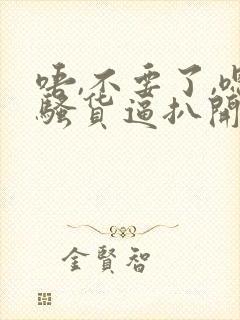 唔,不要了,嗯
骚货逼扒开
金賢智